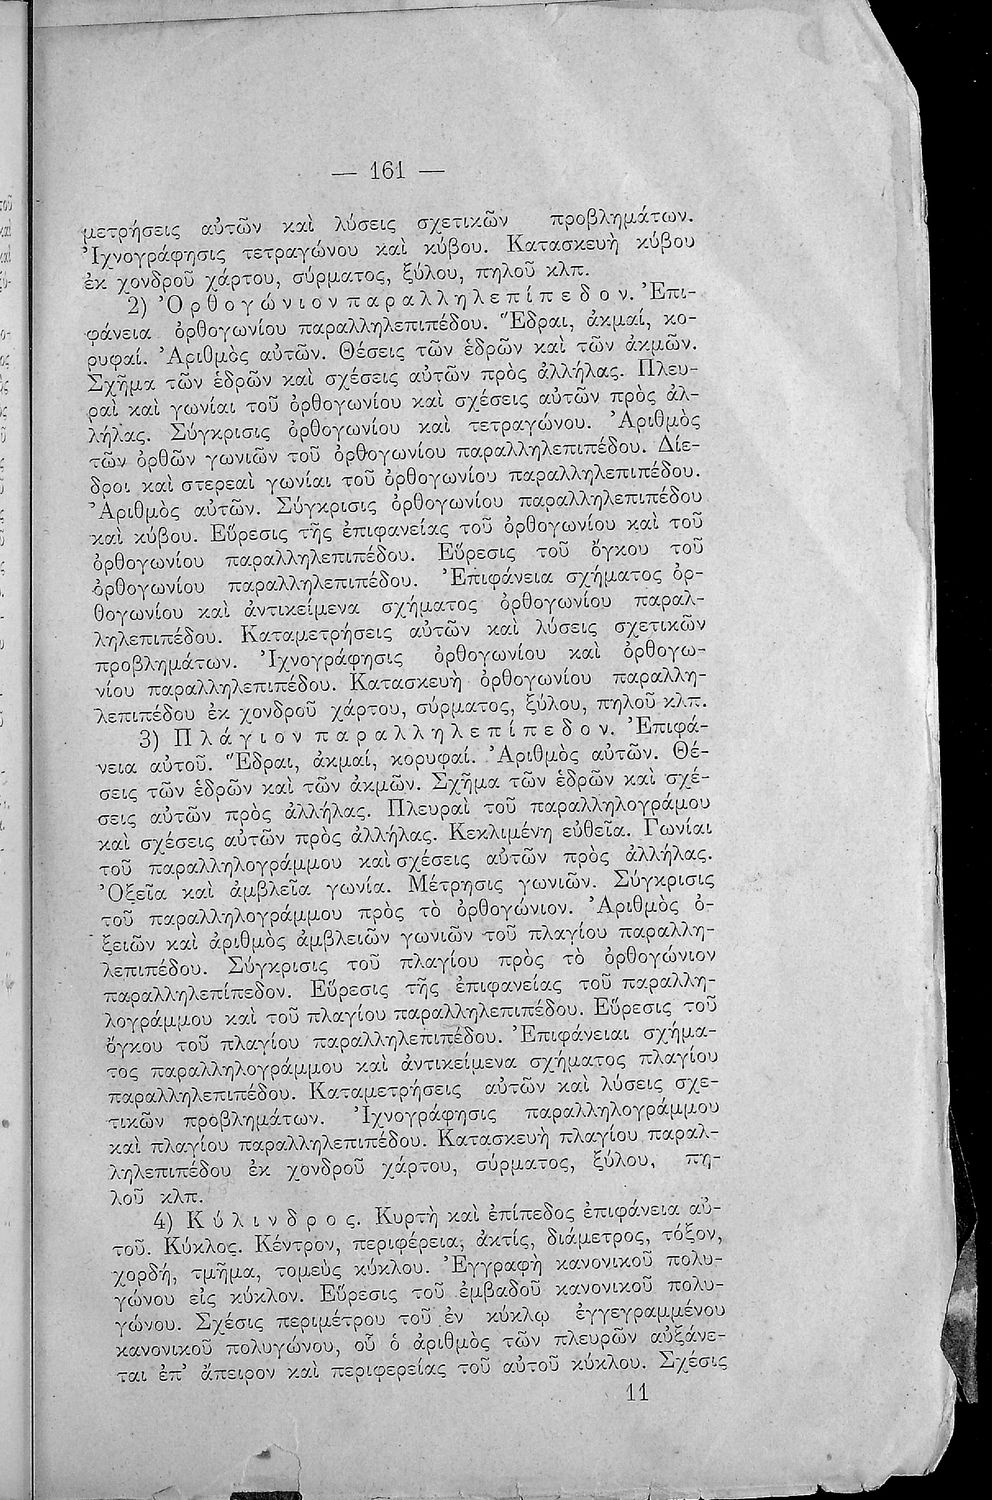 — 161 —
μετρήσεις αὐτῶν καὶ λύσεις σχετικῶν προβλημάτων.
Ἰχνογράφησις τετραγώνου καὶ κύβου. Κατασκευὴ κύβου
ἐκ χονδροῦ χάρτου, σύρματος, ξύλου, πηλοῦ κλπ.
2) Ὀρθογώνιον παραλληλεπίπεδον. Ἐπι-
φάνεια ὀρθογωνίου παραλληλεπιπέδου. Ἕδραι, ἀκμαί, κο-
ρυφαί. Ἀριθμὸς αὐτῶν. Θέσεις τῶν ἑδρῶν καὶ τῶν ἀκμῶν.
Σχῆμα τῶν ἑδρῶν καὶ σχέσεις αὐτῶν πρὸς ἀλλήλας. Πλευ-
ραὶ καὶ γωνίαι τοῦ ὀρθογωνίου καὶ σχέσεις αὐτῶν πρὸς ἀλ-
λήλας. Σύγκρισις ὀρθογωνίου καὶ τετραγώνου. Ἀριθμὸς
τῶν ὀρθῶν γωνιῶν τοῦ ὀρθογωνίου παραλληλεπιπέδου. Δίε-
δροι καὶ στερεαὶ γωνίαι τοῦ ὀρθογωνίου παραλληλεπιπέδου.
Ἀριθμὸς αὐτῶν. Σύγκρισις ὀρθογωνίου παραλληλεπιπέδου
καὶ κύβου. Εὕρεσις τῆς ἐπιφανείας τοῦ ὀρθογωνίου καὶ τοῦ
ὀρθογωνίου παραλληλεπιπέδου. Εὕρεσις τοῦ ὄγκου τοῦ
ὀρθογωνίου παραλληλεπιπέδου. Ἐπιφάνεια σχήματος ὀρ-
θογωνίου καὶ ἀντικείμενα σχήματος ὀρθογωνίου παραλ-
ληλεπιπέδου. Καταμετρήσεις αὐτῶν καὶ λύσεις σχετικῶν
προβλημάτων. Ἰχνογράφησις ὀρθογωνίου καὶ ὀρθογω-
νίου παραλληλεπιπέδου. Κατασκευὴ ὀρθογωνίου παραλλη-
λεπιπέδου ἐκ χονδροῦ χάρτου, σύρματος, ξύλου, πηλοῦ κλπ.
3) Πλάγιον παραλληλεπίπεδον. Ἐπιφά-
νεια αὐτοῦ. Ἕδραι, ἀκμαί, κορυφαί. Ἀριθμὸς αὐτῶν. Θέ-
σεις τῶν ἑδρῶν καὶ τῶν ἀκμῶν. Σχῆμα τῶν ἑδρῶν καὶ σχέ-
σεις αὐτῶν πρὸς ἀλλήλας. Πλευραὶ τοῦ παραλληλογράμου
καὶ σχέσεις αὐτῶν πρὸς ἀλλήλας. Κεκλιμένη εὐθεῖα. Γωνίαι
τοῦ παραλληλογράμμου καὶ σχέσεις αὐτῶν πρὸς ἀλλήλας.
Ὀξεῖα καὶ ἀμβλεῖα γωνία. Μέτρησις γωνιῶν. Σύγκρισις
τοῦ παραλληλογράμμου πρὸς τὸ ὀρθογώνιον. Ἀριθμὸς ὀ-
ξειῶν καὶ ἀριθμὸς ἀμβλειῶν γωνιῶν τοῦ πλαγίου παραλλη-
λεπιπέδου. Σύγκρισις τοῦ πλαγίου πρὸς τὸ ὀρθογώνιον
παραλληλεπίπεδον. Εὕρεσις τῆς ἐπιφανείας τοῦ παραλλη-
λογράμμου καὶ τοῦ πλαγίου παραλληλεπιπέδου. Εὕρεσις τοῦ
ὄγκου τοῦ πλαγίου παραλληλεπιπέδου. Ἐπιφάνειαι σχήμα-
τος παραλληλογράμμου καὶ ἀντικείμενα σχήματος πλαγίου
παραλληλεπιπέδου. Καταμετρήσεις αὐτῶν καὶ λύσεις σχε-
τικῶν προβλημάτων. Ἰχνογράφησις παραλληλογράμμου
καὶ πλαγίου παραλληλεπιπέδου. Κατασκευὴ πλαγίου παραλ-
ληλεπιπέδου ἐκ χονδροῦ χάρτου, σύρματος, ξύλου, πη-
λοῦ κλπ.
4) Κύλινδρος. Κυρτὴ καὶ ἐπίπεδος ἐπιφάνεια αὐ-
τοῦ. Κύκλος. Κέντρον, περιφέρεια, ἀκτίς, διάμετρος, τόξον,
χορδή, τμῆμα, τομεὺς κύκλου. Ἐγγραφὴ κανονικοῦ πολυ-
γώνου εἰς κύκλον. Εὕρεσις τοῦ ἐμβαδοῦ κανονικοῦ πολυ-
γώνου. Σχέσις περιμέτρου τοῦ ἐν κύκλῳ ἐγγεγραμμένου
κανονικοῦ πολυγώνου, οὗ ὁ ἀριθμὸς τῶν πλευρῶν αὐξάνε-
ται ἐπ' ἄπειρον καὶ περιφερείας τοῦ αὐτοῦ κύκλου. Σχέσις
11